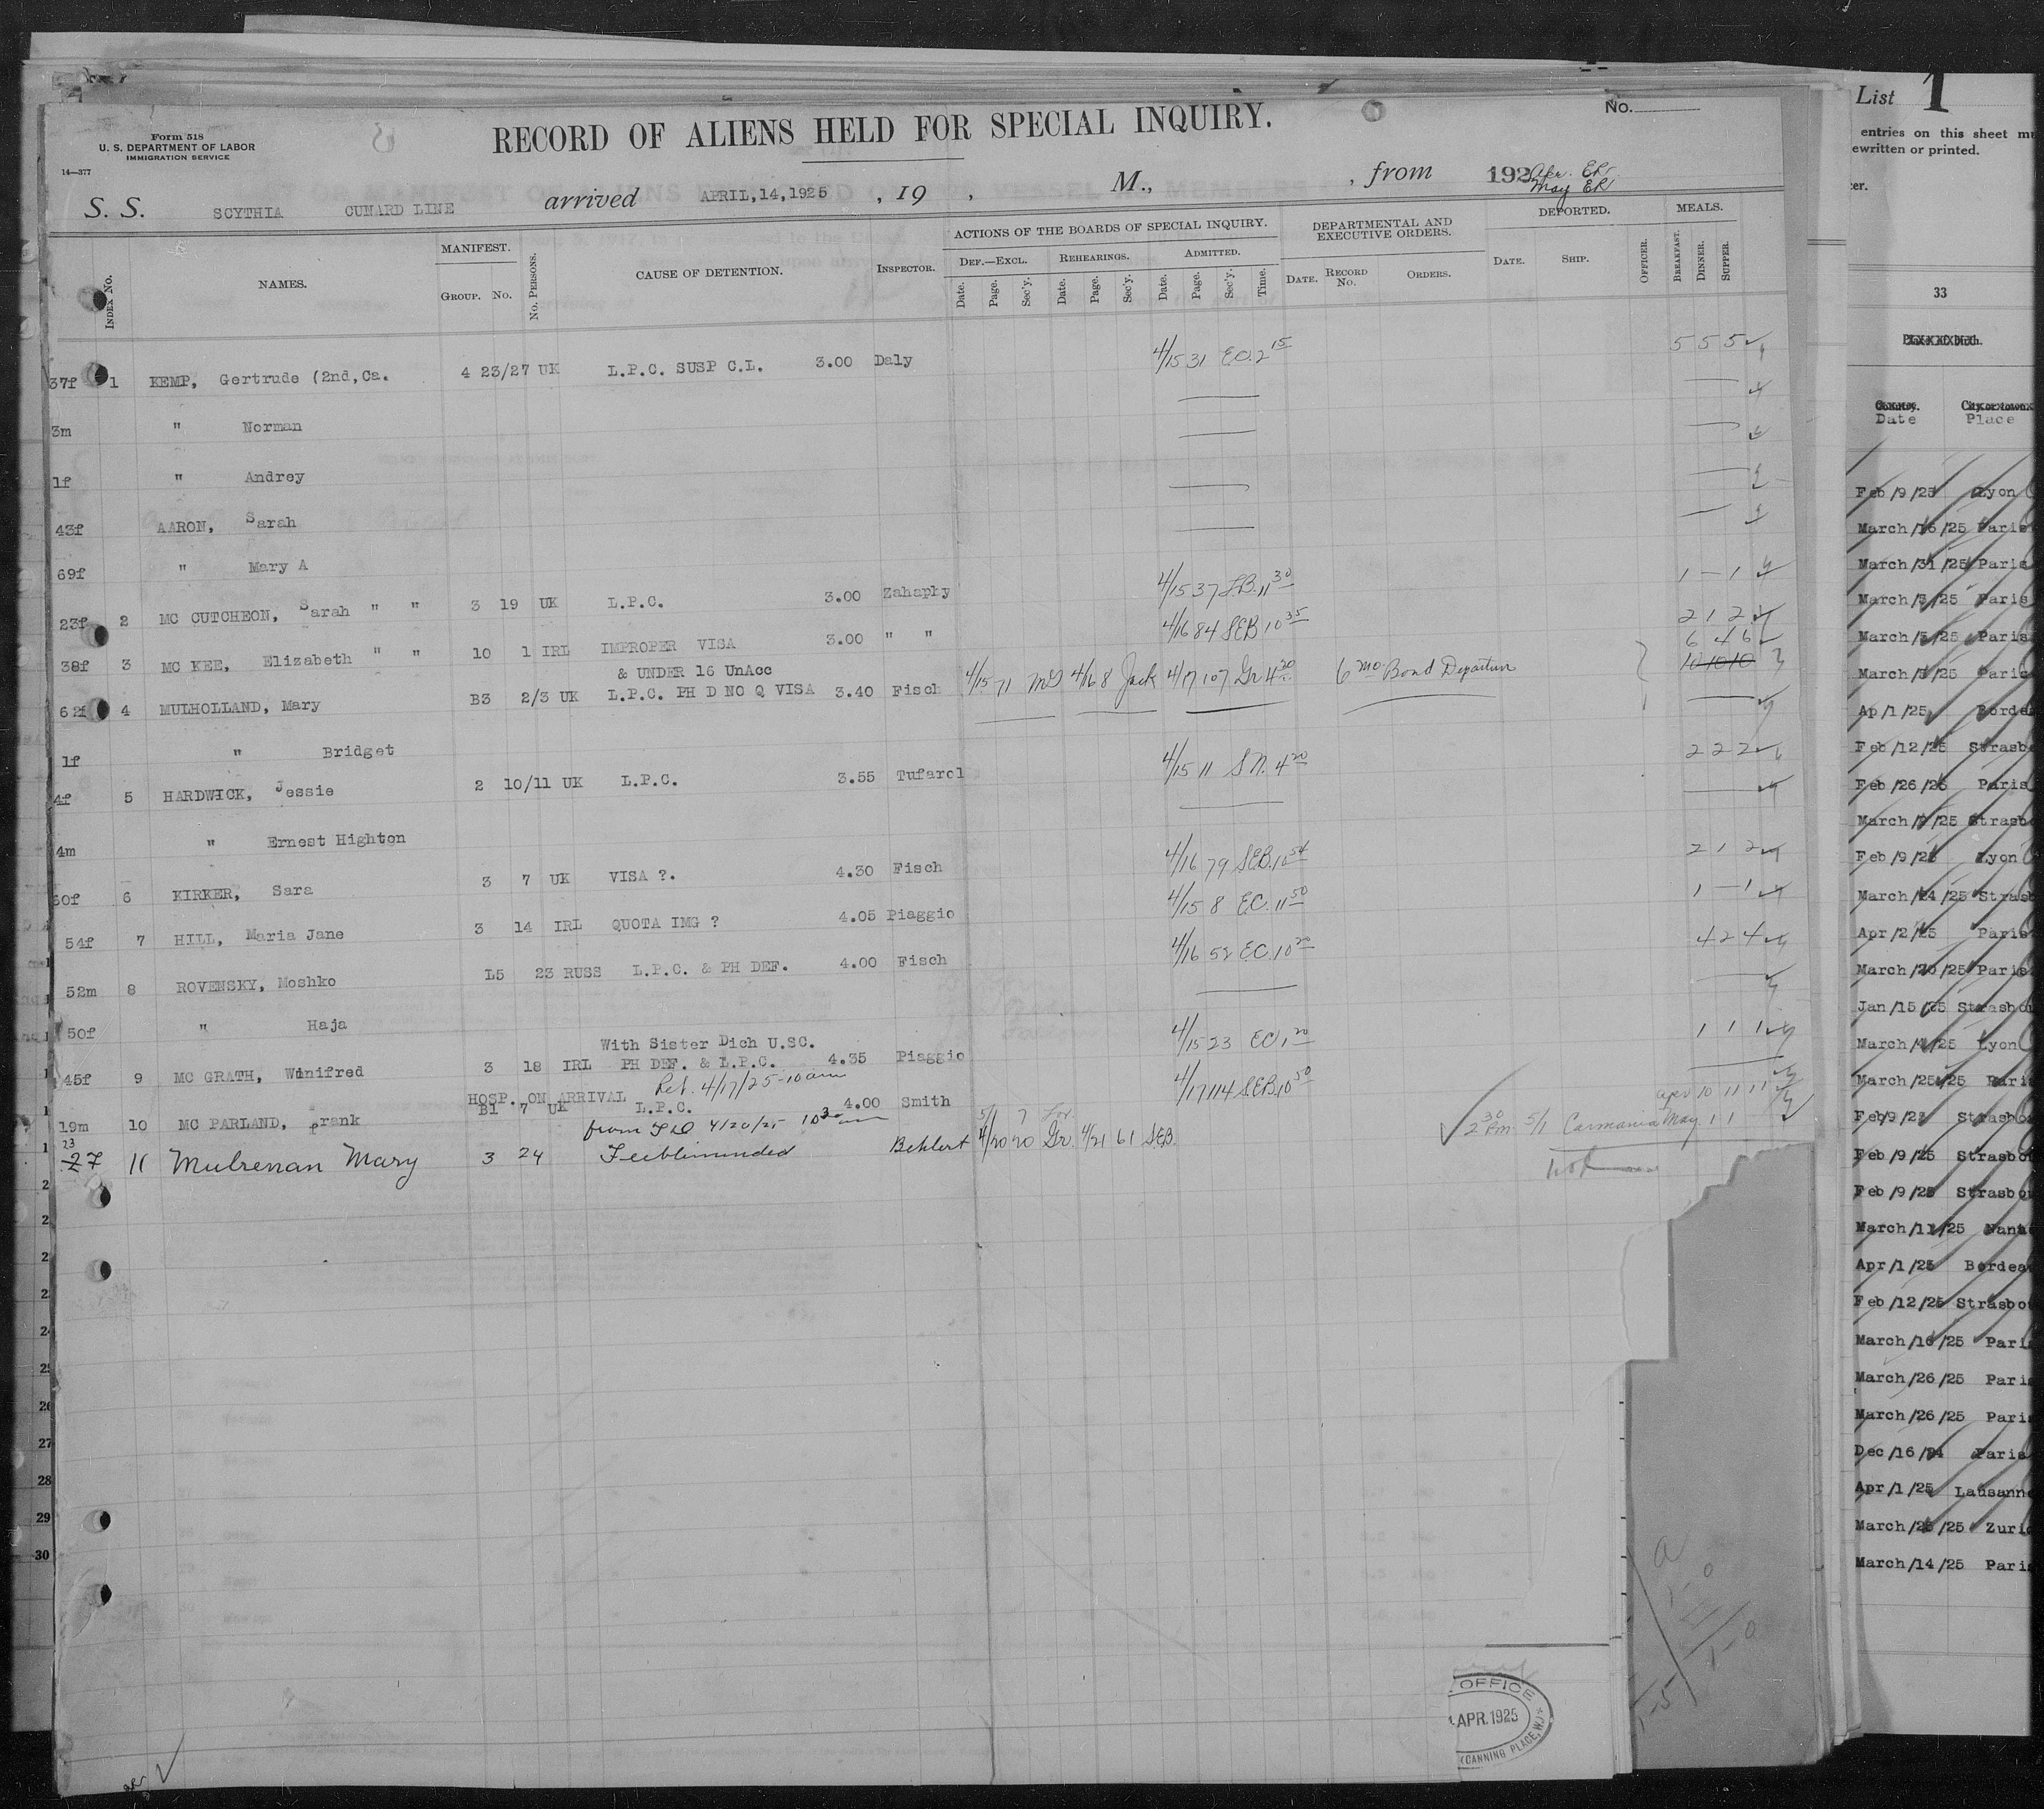 Form 518
U. S. DEPARTMENT OF LABOR
IMMIGRATION SERVICE
14—377
RECORD OF ALIENS HELD FOR SPECIAL INQUIRY.
No.
S. S. SCYTHIA CUNARD LINE arrived APRIL,14,1925 , 19 , M., , from 192 Apr. ER
May ER
INDEX No. NAMES. MANIFEST. GROUP. NO. No. PERSONS. CAUSE OF DETENTION. INSPECTOR. ACTIONS OF THE BOARDS OF SPECIAL INQUIRY. DEPARTMENTAL AND EXECUTIVE ORDERS. DEPORTED. OFFICER. MEALS.
DEF.—EXCL. REHEARINGS. ADMITTED.
Date. Page. Sec'y. Date. Page. Sec'y. Date. Page. Sec'y. Time. DATE. RECORD No. ORDERS. DATE. SHIP. BREAKFAST. DINNER. SUPPER.
37f 1 KEMP, Gertrude (2nd,Ca. 4 23/27 UK L.P.C. SUSP C.L. 3.00 Daly 4/15 31 E.C. 2 15 5 5 5
3m " Norman
1f " Andrey
43f AARON, Sarah
69f " Mary A
23f 2 MC CUTCHEON, Sarah " " 3 19 UK L.P.C. 3.00 Zahaphy 4/15 37 J.B. 11 30 1 — 1
38f 3 MC KEE, Elizabeth " " 10 1 IRL IMPROPER VISA 3.00 " " 4/16 84 SEB 10 35 2 1 2
& UNDER 16 UnAcc 6 4 6
62f 4 MULHOLLAND, Mary B3 2/3 UK L.P.C. PH D NO Q VISA 3.40 Fisch 4/15 71 4/16 8 Jack 4/17 107 Gr 4 20 6 mo. Bond Departure 10 10 10
1f " Bridget
4f 5 HARDWICK, Jessie 2 10/11 UK L.P.C. 3.55 Tufarol 4/15 11 S.N. 4 20 2 2 2
4m " Ernest Highton
60f 6 KIRKER, Sara 3 7 UK VISA ?. 4.30 Fisch 4/16 79 SEB. 10 54 2 1 2
54f 7 HILL, Maria Jane 3 14 IRL QUOTA IMG ? 4.05 Piaggio 4/15 8 E.C. 11 50 1 — 1
52m 8 ROVENSKY, Moshko L5 23 RUSS L.P.C. & PH DEF. 4.00 Fisch 4/16 52 E.C. 10 20 4 2 4
50f " Haja
With Sister Dich U.SC.
45f 9 MC GRATH, Winifred 3 18 IRL PH DEF. & L.P.C. 4.35 Piaggio 4/15 23 EC 1 20 1 1 1
HOSP. ON ARRIVAL Ret. 4/17/25-10 am
19m 10 MC PARLAND, Frank B1 7 UK L.P.C. 4.00 Smith 4/17 114 S.E.B. 10 50 Apr 10 11 11
from 4/20/25 10 30 am 5/1 7
23
27 11 Mulrenan Mary 3 24 Feebleminded Behlert 4/20 20 Gr. 4/21 61 SEB. 2 30 Pm. 5/1 Carmania May 1 1
2
2
2
2
2
24
25
26
27
28
29
30
OFFICE
APR.1925
(CANNING PLACE, W.)
List 1
entries on this sheet
ewritten or printed.
33
Date Place
Feb/9/25 Lyon
March/16/25 Paris
March/31/25 Paris
March/3/25 Paris
March/3/25 Paris
March/5/25 Paris
Ap/1/25 Borde
Feb/12/25 Strasb
Feb/26/25 Paris
March/9/25 Strasb
Feb/9/25 Lyon
March/24/25 Strasb
Apr/2/25 Paris
March/20/25 Paris
Jan/15/25 Strasbou
March/4/25 Lyon
March/25/25 Pari
Feb/9/25 Strasbo
Feb/9/25 Strasbo
Feb/9/25 Strasbo
March/11/25 Nant
Apr/1/25 Bordea
Feb/12/25 Strasbo
March/16/25 Pari
March/26/25 Pari
March/26/25 Pari
Dec/16/24 Paris
Apr/1/25 Lausann
March/25/25 Zuri
March/14/25 Pari